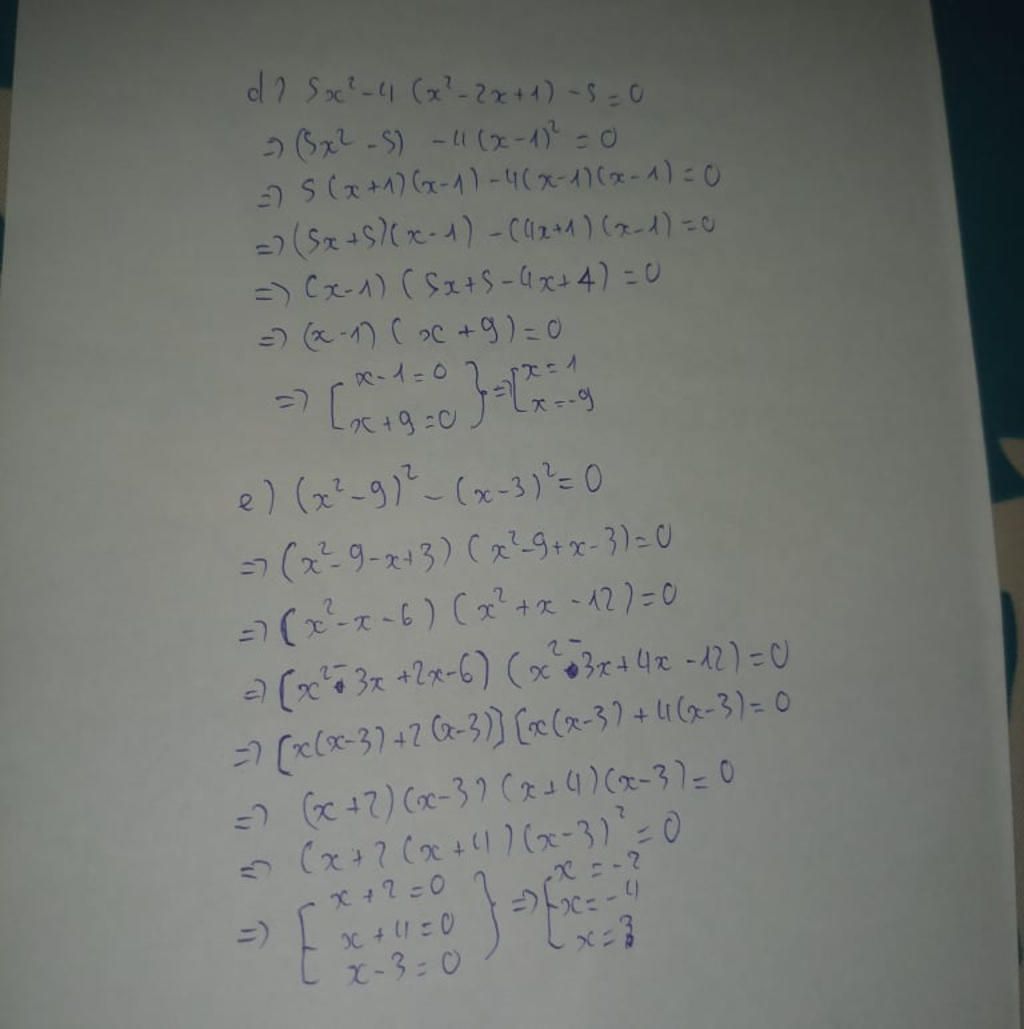 d) 5x² - 4 (x² - 2x + 1) - 5 = 0
=> (5x² - 5) - 4 (x - 1)² = 0
=> 5 (x + 1) (x - 1) - 4 (x - 1) (x - 1) = 0
=> (5x + 5) (x - 1) - (4x + 1) (x - 1) = 0
=> (x - 1) (5x + 5 - 4x + 4) = 0
=> (x - 1) (x + 9) = 0
=> [ x - 1 = 0 } => [ x = 1
x + 9 = 0 x = -9
e) (x² - 9)² - (x - 3)² = 0
=> (x² - 9 - x + 3) (x² - 9 + x - 3) = 0
=> (x² - x - 6) (x² + x - 12) = 0
=> (x² - 3x + 2x - 6) (x² - 3x + 4x - 12) = 0
=> [x(x - 3) + 2 (x - 3)] [x(x - 3) + 4(x - 3) = 0
=> (x + 2) (x - 3) (x + 4) (x - 3) = 0
=> (x + 2 (x + 4) (x - 3)² = 0
=> [ x + 2 = 0 } => [ x = -2
x + 4 = 0 x = -4
x - 3 = 0 x = 3